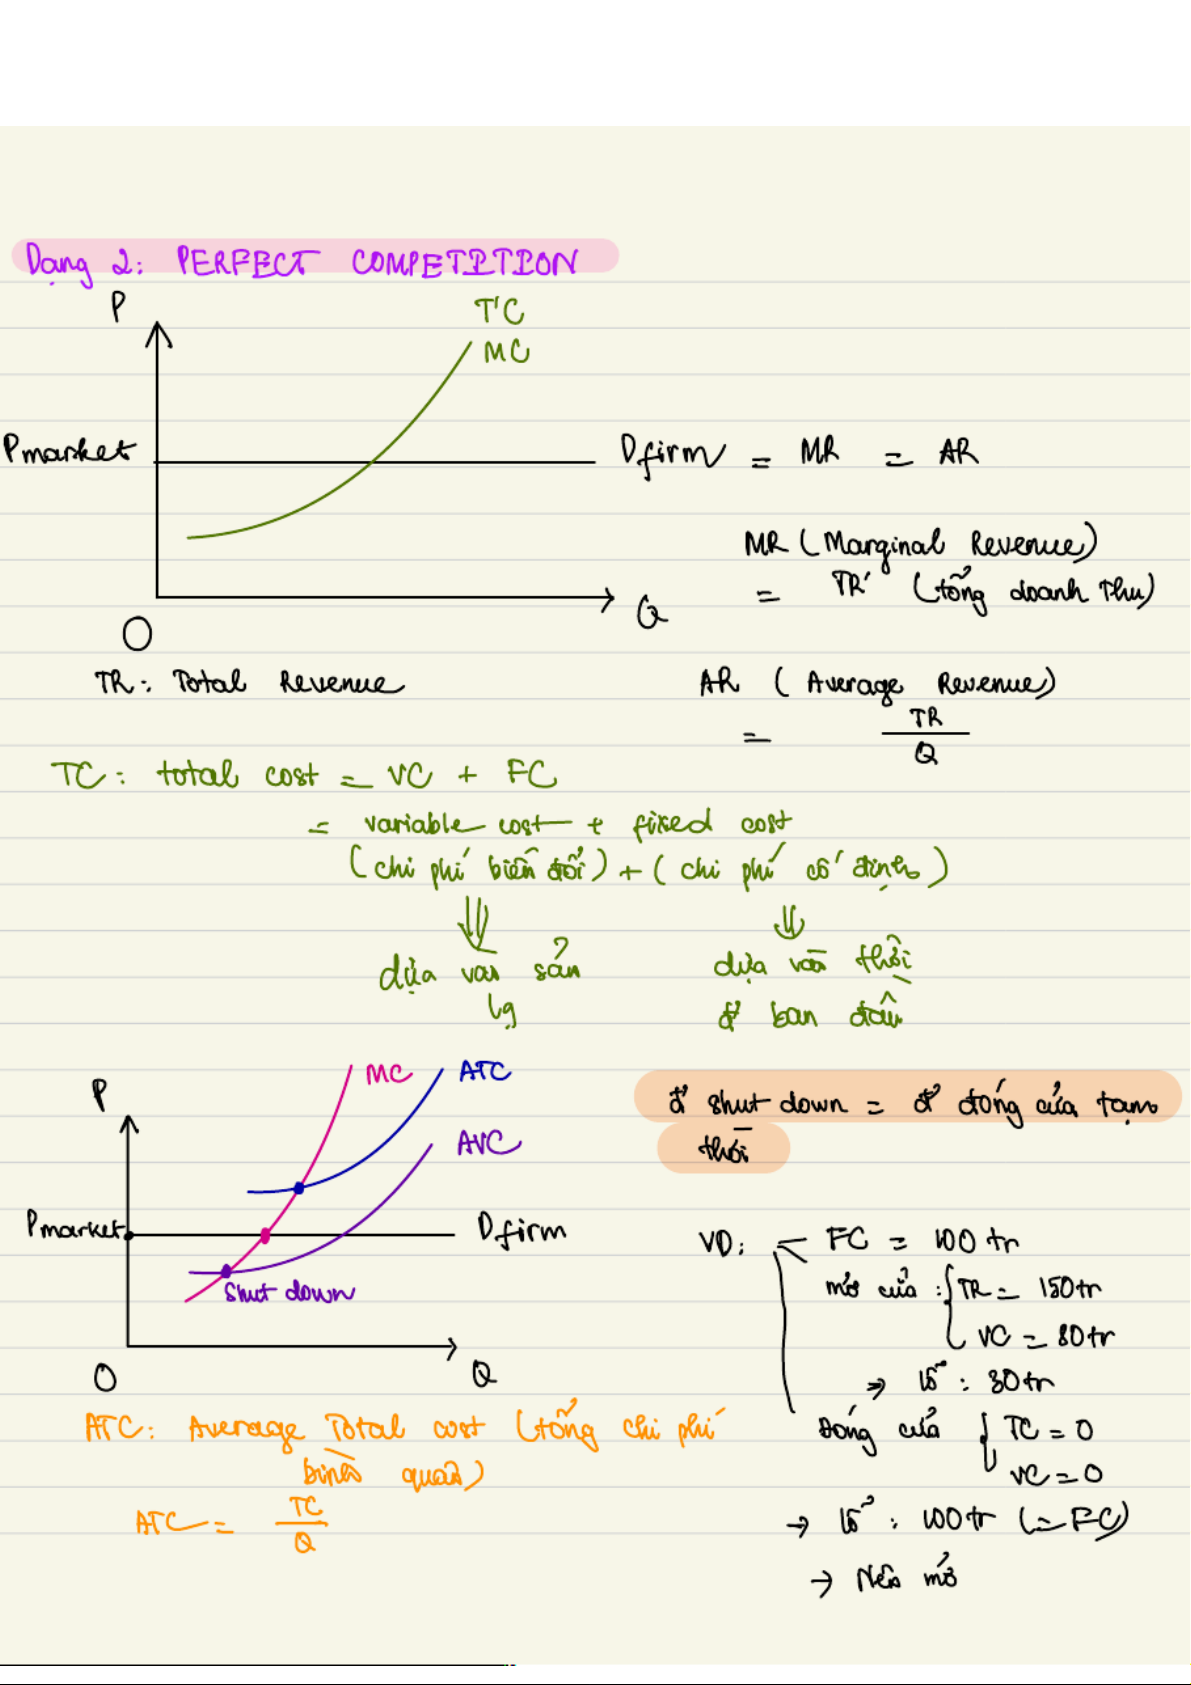 Dạng 2: PERFECT COMPETITION
P
T'C
MC
Pmarket
Dfirm = MR = AR
MR (Marginal Revenue)
= TR' (tổng doanh thu)
O
Q
TR: Total Revenue
AR (Average Revenue)
= TR/Q
TC: total cost = VC + FC
= variable cost + fixed cost
(chi phí biến đổi) + (chi phí cố định)
⇓ ⇓
dựa vào sản dựa vào thời
lg đ' ban đầu
P
MC
ATC
AVC
Pmarket
Dfirm
Shut down
O
Q
đ' shut down = đ' đóng cửa tạm
thời
VD: FC = 100 tr
mở cửa: { TR = 150tr
VC = 80tr
⇒ lỗ: 30tr
Đóng cửa { TC = 0
VC = 0
→ lỗ: 100tr (= FC)
→ Nên mở
ATC: Average Total cost (tổng chi phí
bình quân)
ATC = TC/Q